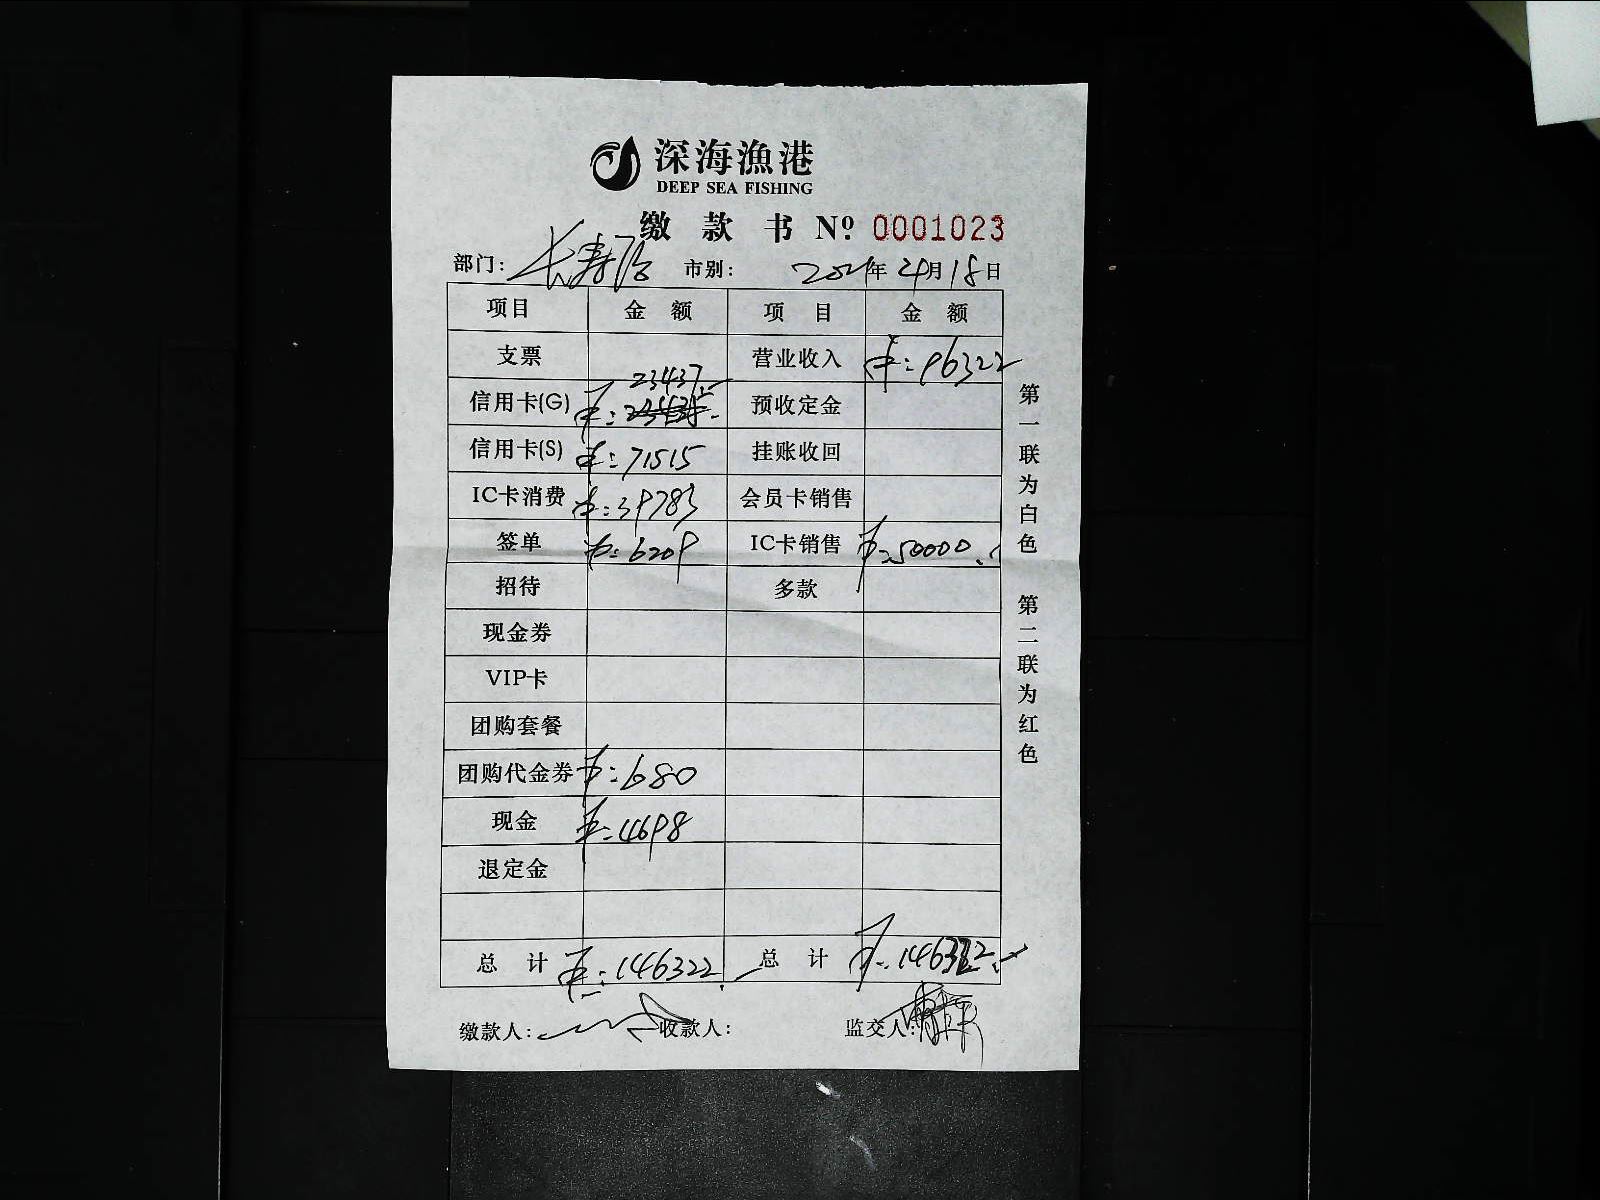 深海漁港
DEEP SEA FISHING
缴款书 Nº 0001023
部门: 长寿路 市别: 2021年4月18日
项目 金额 项目 金额
支票 营业收入 ¥:96322
信用卡(G) ¥:23437.- 预收定金
信用卡(S) ¥:71515 挂账收回
IC卡消费 ¥:39783 会员卡销售
签单 ¥:6209 IC卡销售 ¥:50000.-
招待 多款
现金券
VIP卡
团购套餐
团购代金券 ¥:680
现金 ¥:4698
退定金
总计 ¥:146322.- 总计 ¥:146322.-
缴款人: 收款人: 监交人:
第一联为白色 第二联为红色